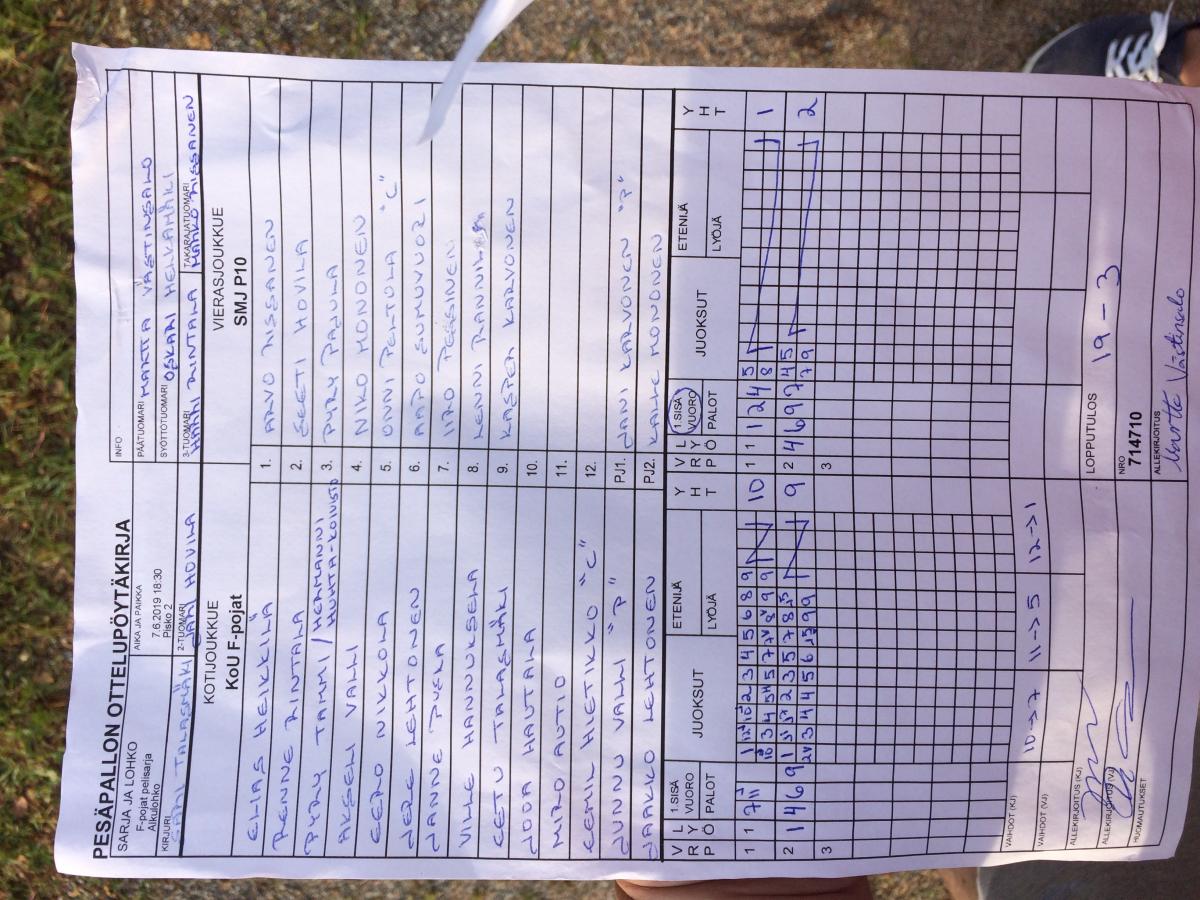 PESÄPALLON OTTELUPÖYTÄKIRJA
SARJA JA LOHKO
F-pojat pelisarja
Alkulohko
AIKA JA PAIKKA
7.6.2019 18:30
Pisko 2
INFO
PÄÄTUOMARI MARTTA VÄSTINSALO
SYÖTTÖTUOMARI OSKARI HELKAMÄKI
KIRJURI SARI TALASMÄKI
2-TUOMARI JARI HOVILA
3-TUOMARI HARRI RINTALA
TAKARAJATUOMARI MARKO NISSANEN
KOTIJOUKKUE
KoU F-pojat
VIERASJOUKKUE
SMJ P10
ELIAS HEIKKILÄ 1. ARVO NISSANEN
RENNE RINTALA 2. EETI HOVILA
PYRY TAMMI / HERMANNI HUHTA-KOIVISTO 3. PYRY PAJULA
AKSELI VALLI 4. NIKO MONONEN
EERO NIKKOLA 5. ONNI PELTOLA "C"
JERE LEHTONEN 6. AAPO SUMUVUORI
JANNE 7. IIRO PESSINEN
VILLE HANNUKSELA 8. LENNI
EETU TALASMÄKI 9. KASPER KARVONEN
JOOA HAUTALA 10.
MIRO AUTIO 11.
EEMIL HIETIKKO "C" 12.
JUNNU VALLI "P" PJ1. JANI KARVONEN "P"
JAAKKO LEHTONEN PJ2. KALLE MONONEN
V R P
L Y Ö
1.SISÄ VUORO
PALOT
JUOKSUT
ETENIJÄ
LYÖJÄ
Y H T
V R P
L Y Ö
1.SISÄ VUORO
PALOT
JUOKSUT
ETENIJÄ
LYÖJÄ
Y H T
1 1 7 10
1 1 1 2 4 5 1
8
2 1 4 6 9 9
2 4 6 9 7 4 5 2
7 9
3
3
VAIHDOT (KJ) 10->7 11->5 12->1
VAIHDOT (VJ)
ALLEKIRJOITUS (KJ)
ALLEKIRJOITUS (VJ)
HUOMAUTUKSET
LOPPUTULOS 19 - 3
NRO
714710
ALLEKIRJOITUS
Martta Västinsalo